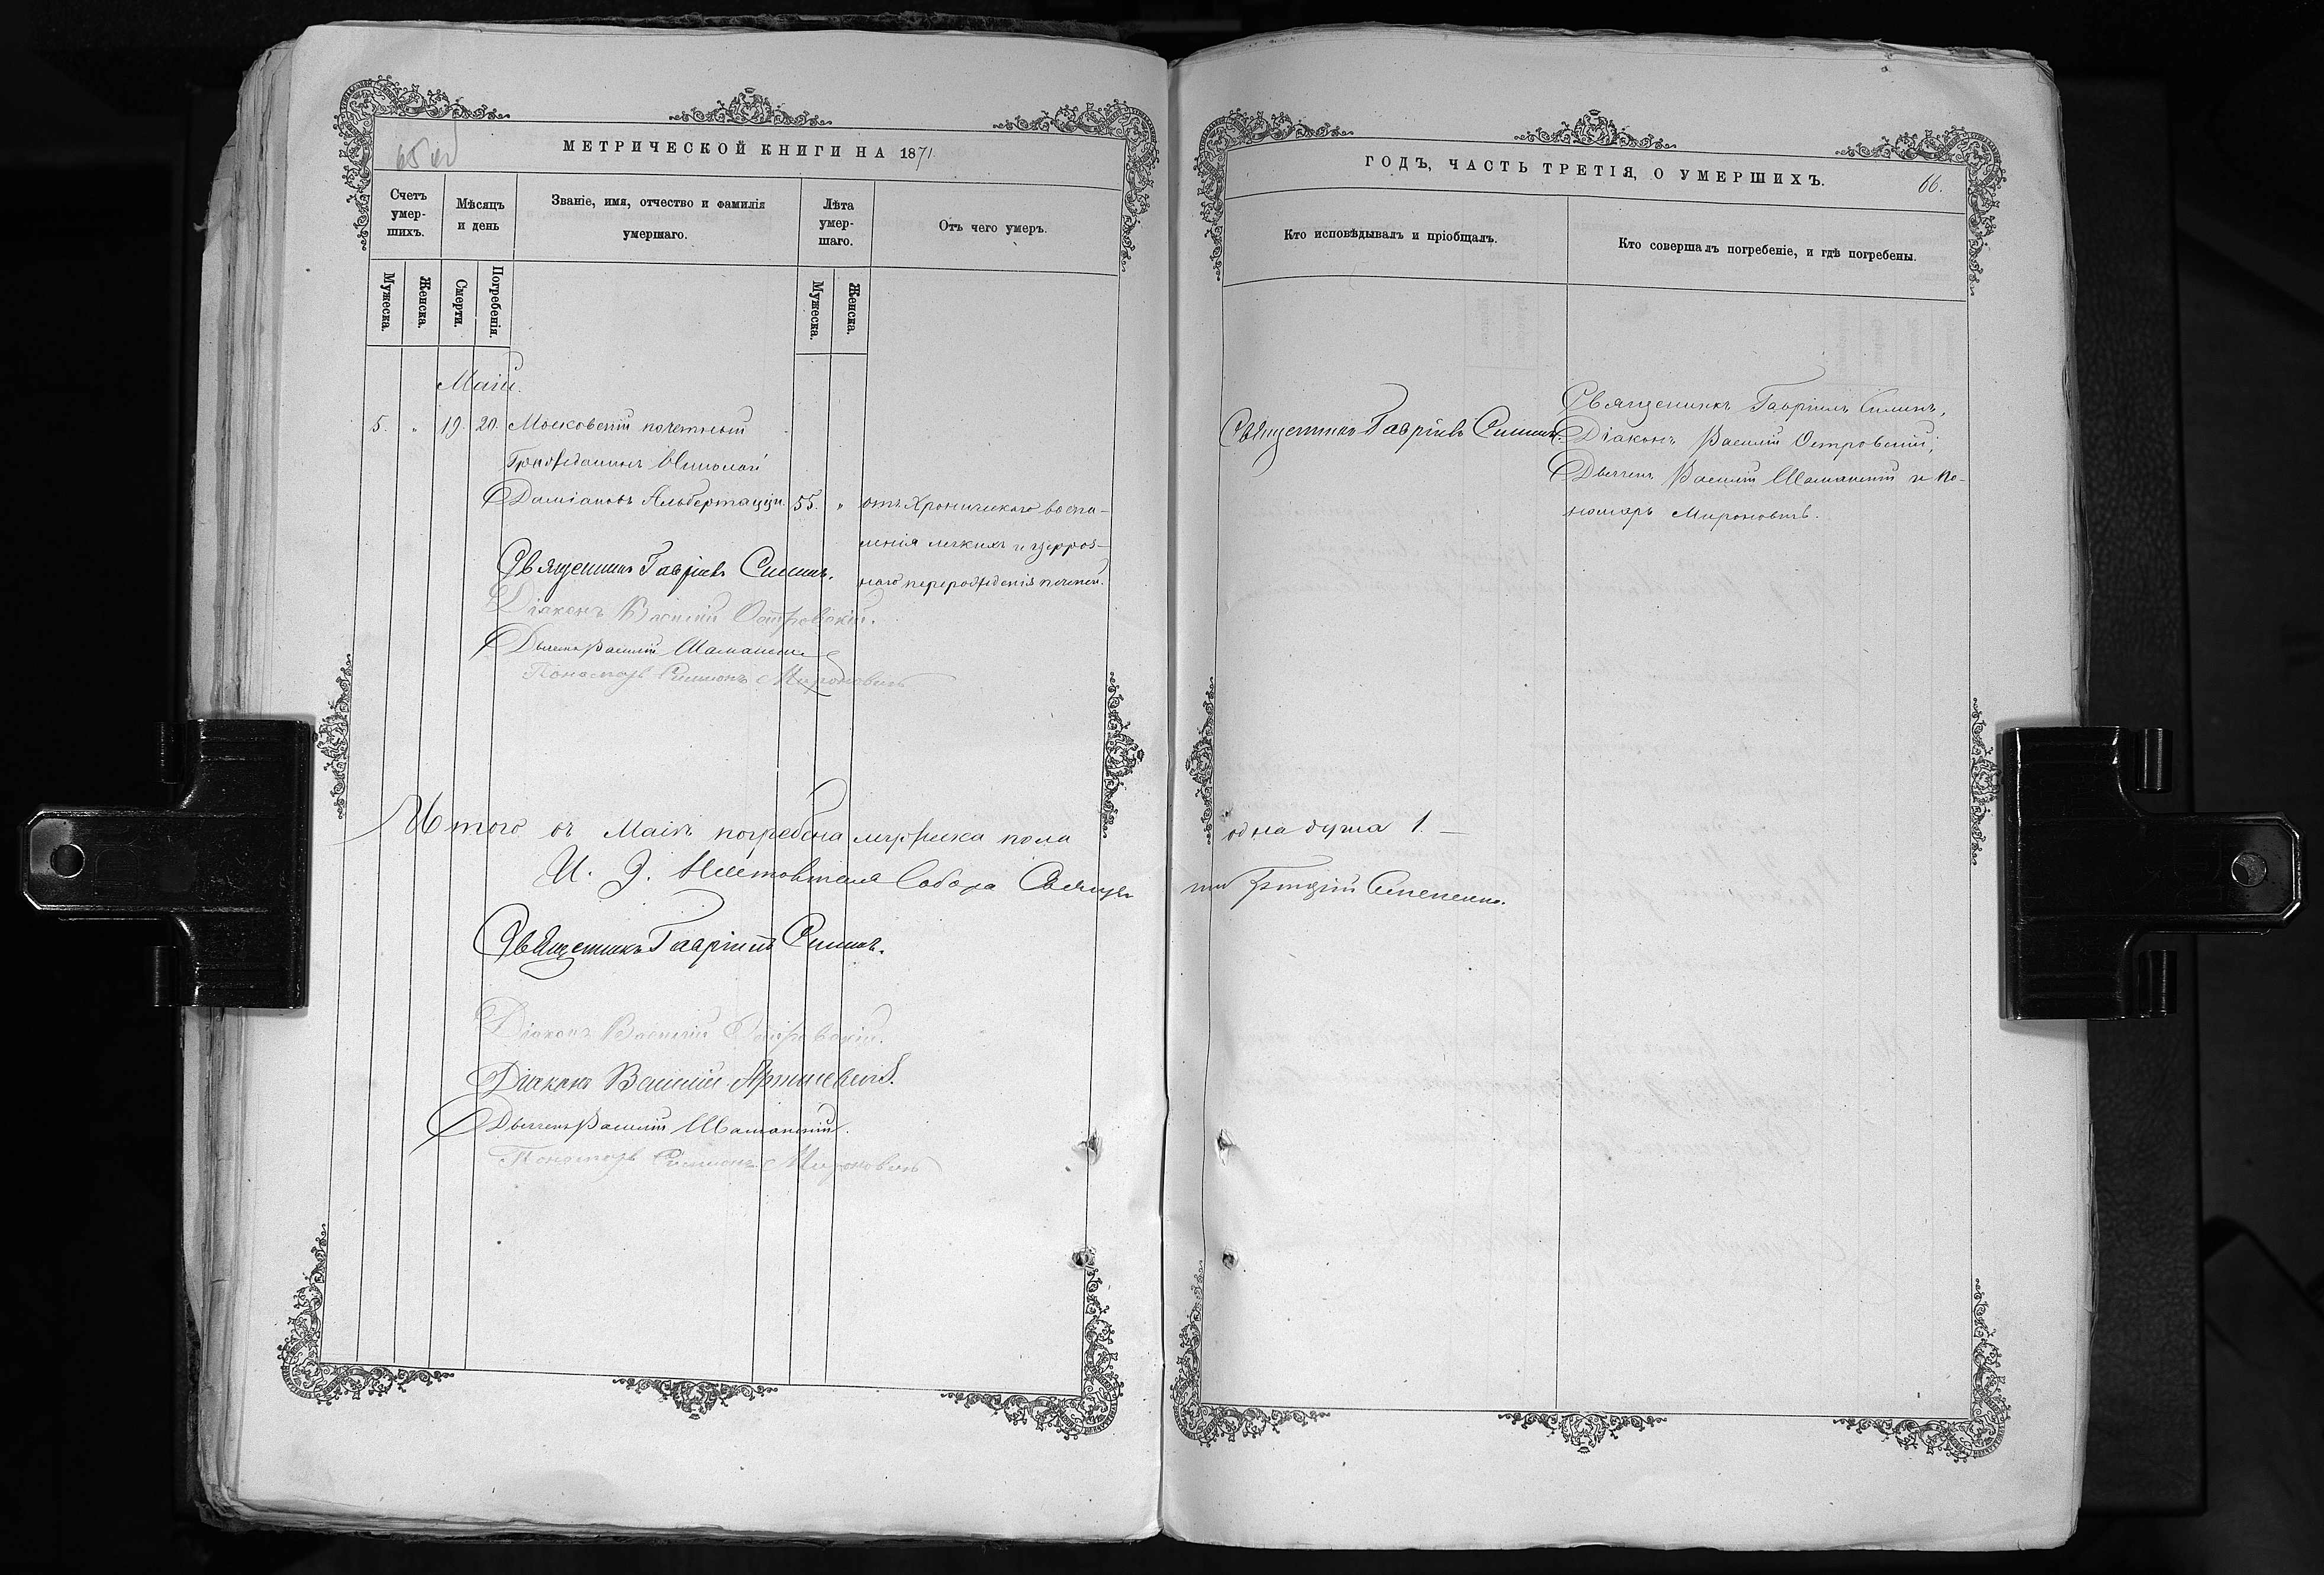 МЕТРИЧЕСКОЙ КНИГИ НА 1871
Счетъ умер-шихъ.
Мѣсяцъ и день
Званіе, имя, отчество и фамилія умершаго.
Лѣта умер-шаго.
Отъ чего умеръ.
Мужеска.
Женска.
Смерти.
Погребенія.
Мужеска.
Женска.
Маій.
5. " 19. 20. Московскій почетный
Гражданинъ Николай
Даміановъ Альбертацци. 55. " отъ Хроническаго воспа-
ленія легкихъ и цирроз-
наго перерожденія печени.
Священникъ Гавріилъ Силинъ.
Діаконъ Василій Островскій.
Дьячекъ Василій Шаманскій
Пономарь Симеонъ Мироновичъ
Итого въ Маіѣ погребена мужеска пола
И. Д. Ключаря Собора Священ
Священникъ Гавріилъ Силинъ.
Діаконъ Василій Островскій.
Діаконъ Василій
Дьячекъ Василій Шаманскій.
Пономарь Симеонъ Мироновичъ
ГОДЪ, ЧАСТЬ ТРЕТІЯ, О УМЕРШИХЪ.
66.
Кто исповѣдывалъ и пріобщалъ.
Кто совершалъ погребеніе, и гдѣ погребены.
Священникъ Гавріилъ Силинъ.
Священникъ Гавріилъ Силинъ,
Діаконъ Василій Островскій;
Дьячекъ Василій Шаманскій и по-
номарь Мироновичъ.
одна душа 1. —